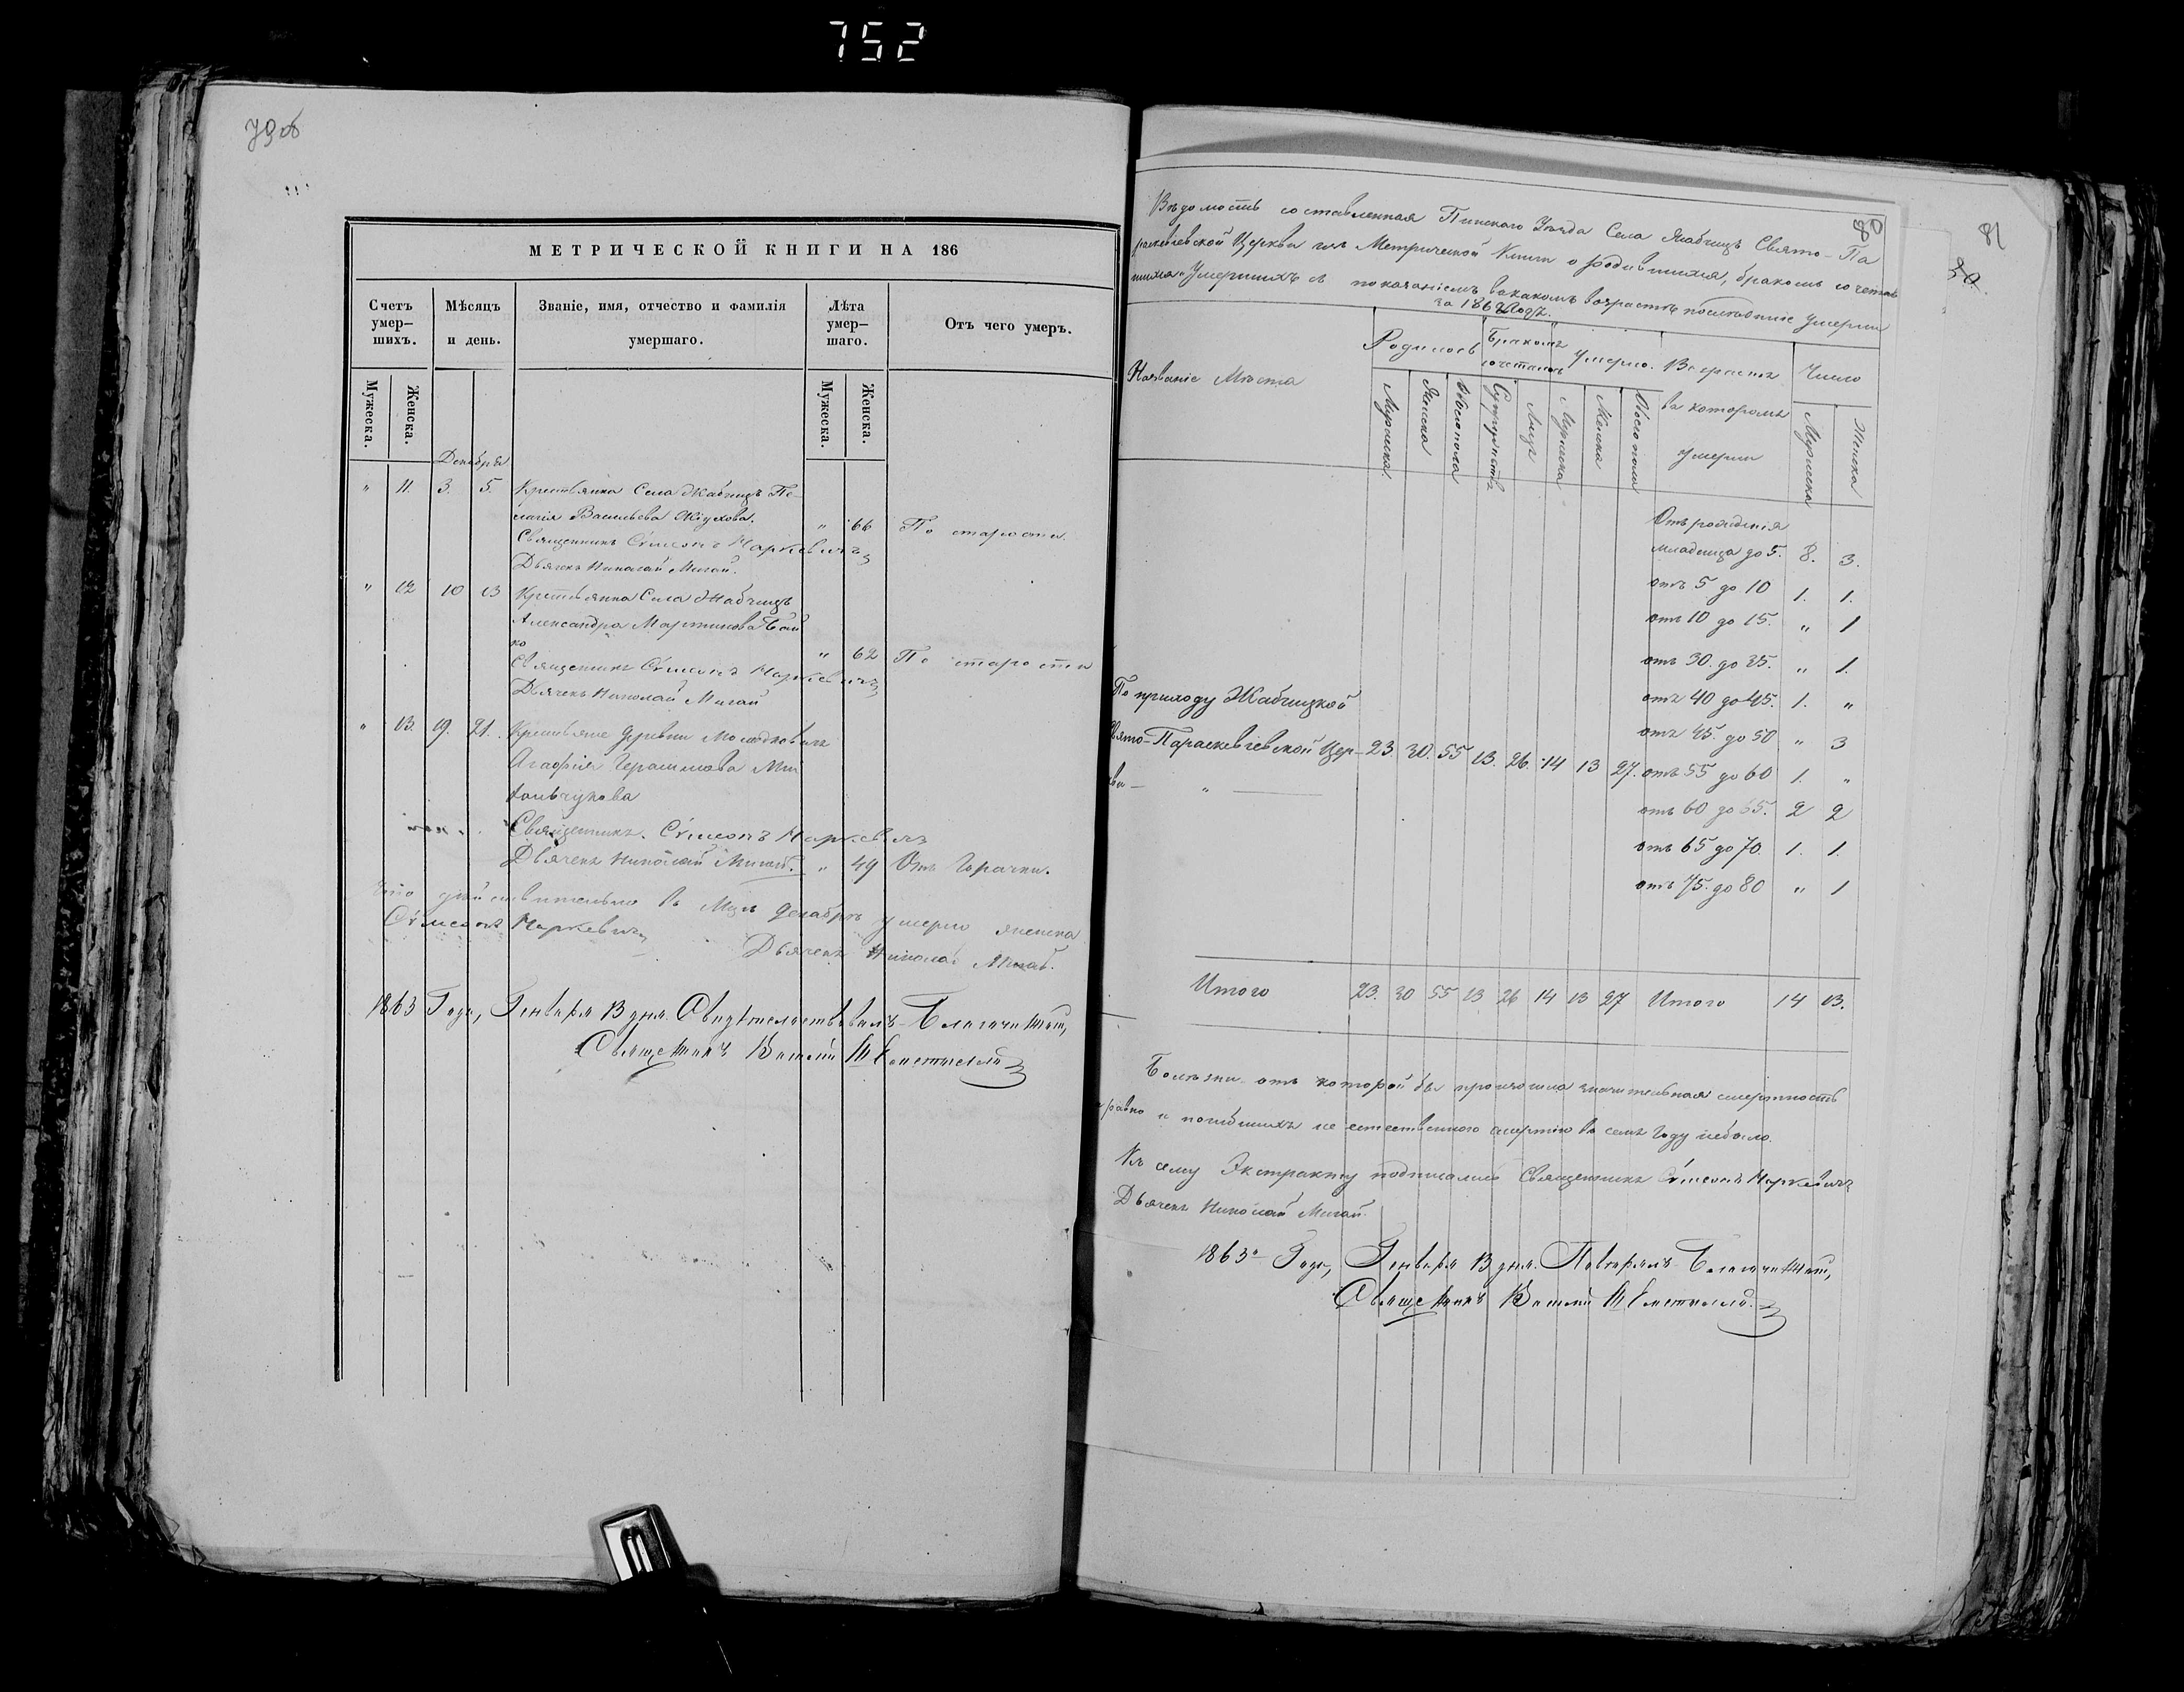 752
79об
МЕТРИЧЕСКОЙ КНИГИ НА 186
Счетъ умер-шихъ.
Мѣсяцъ и день.
Званіе, имя, отчество и фамилія умершаго.
Лѣта умер-шаго.
Отъ чего умеръ.
Мужеска. Женска.
Мужеска. Женска.
Декабря
" 11. 3. 5. Крестьянка Села Жабчицъ Пе-
лагія Васильева
" 66 По старости.
Священникъ Сѵмеонъ Маркевичъ
Дьячекъ Николай Мигай.
" 12 10 13 Крестьянка Села Жабчицъ
Александра Мартинова Бой
ко
" 62 По старости
Священникъ Сѵмеонъ Маркевичъ
Дьячекъ Николай Мигай
" 13. 19. 21. Крестьяне деревни
Агафія Герасимова Ми
хальчукова
Священникъ. Сѵмеонъ Маркевичъ
Дьячекъ Николай Мигай. " 49 Отъ Горячки.
Что дѣйствительно въ Мцѣ Декабрѣ умерло женска
Сѵмеонъ Маркевичъ
Дьячекъ Николай Мигай.
1863 Года, Генваря 13 дня. Свидѣтельствовалъ Благочинный,
Священникъ
80
81
Вѣдомость составленная Пинскаго Уѣзда Села Жабчицъ Свято-Па
раскевіевской Церкви изъ Метрической Книги о родившихся, бракомъ сочетав
шихся и Умершихъ съ показаніемъ въ какомъ возрастѣ послѣдніе Умерли
за 1862 Годъ.
Названіе Мѣста
Родилось
Бракомъ сочеталось
Умерло.
Возрастъ въ которомъ умерли
Число
Мужеска Женска Обоего пола Супружествъ Лицъ Мужеска Женска Обоего пола
Мужеска Женска
Отъ рожденія
младенца до 5. 8. 3.
отъ 5 до 10 1. 1.
отъ 10 до 15. " 1
отъ 30. до 35. " 1.
отъ 40 до 45. 1. "
отъ 45. до 50 " 3
отъ 55 до 60 1. "
отъ 60 до 65. 2 2
отъ 65 до 70. 1. 1.
отъ 75. до 80 " 1
По приходу Жабчицкой
Свято-Параскевіевской Цер- 23. 30. 55 13. 26. 14 13 27.
кви — "
Итого 23. 30 55 13 26 14 13 27 Итого 14 13.
Болѣзни отъ которой бы произошла значительная смертность
равно и погибшихъ не естественного смертію въ семъ Году небыло.
Къ сему Экстракту подписались Священникъ Сѵмеонъ Маркевичъ
Дьячекъ Николай Мигай.
1863 Года, Генваря 13 дня. Повѣрялъ Благочинный,
Священникъ